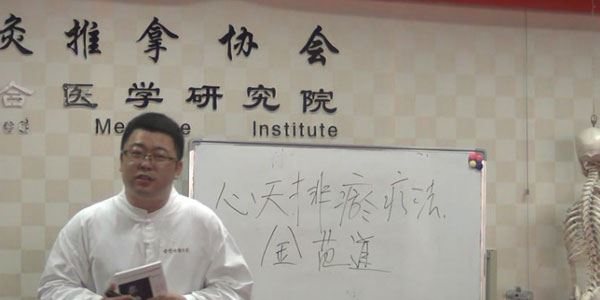 灸推拿协会
合医学研究院
Me e Institute
心天排瘀疗法.
金苞道